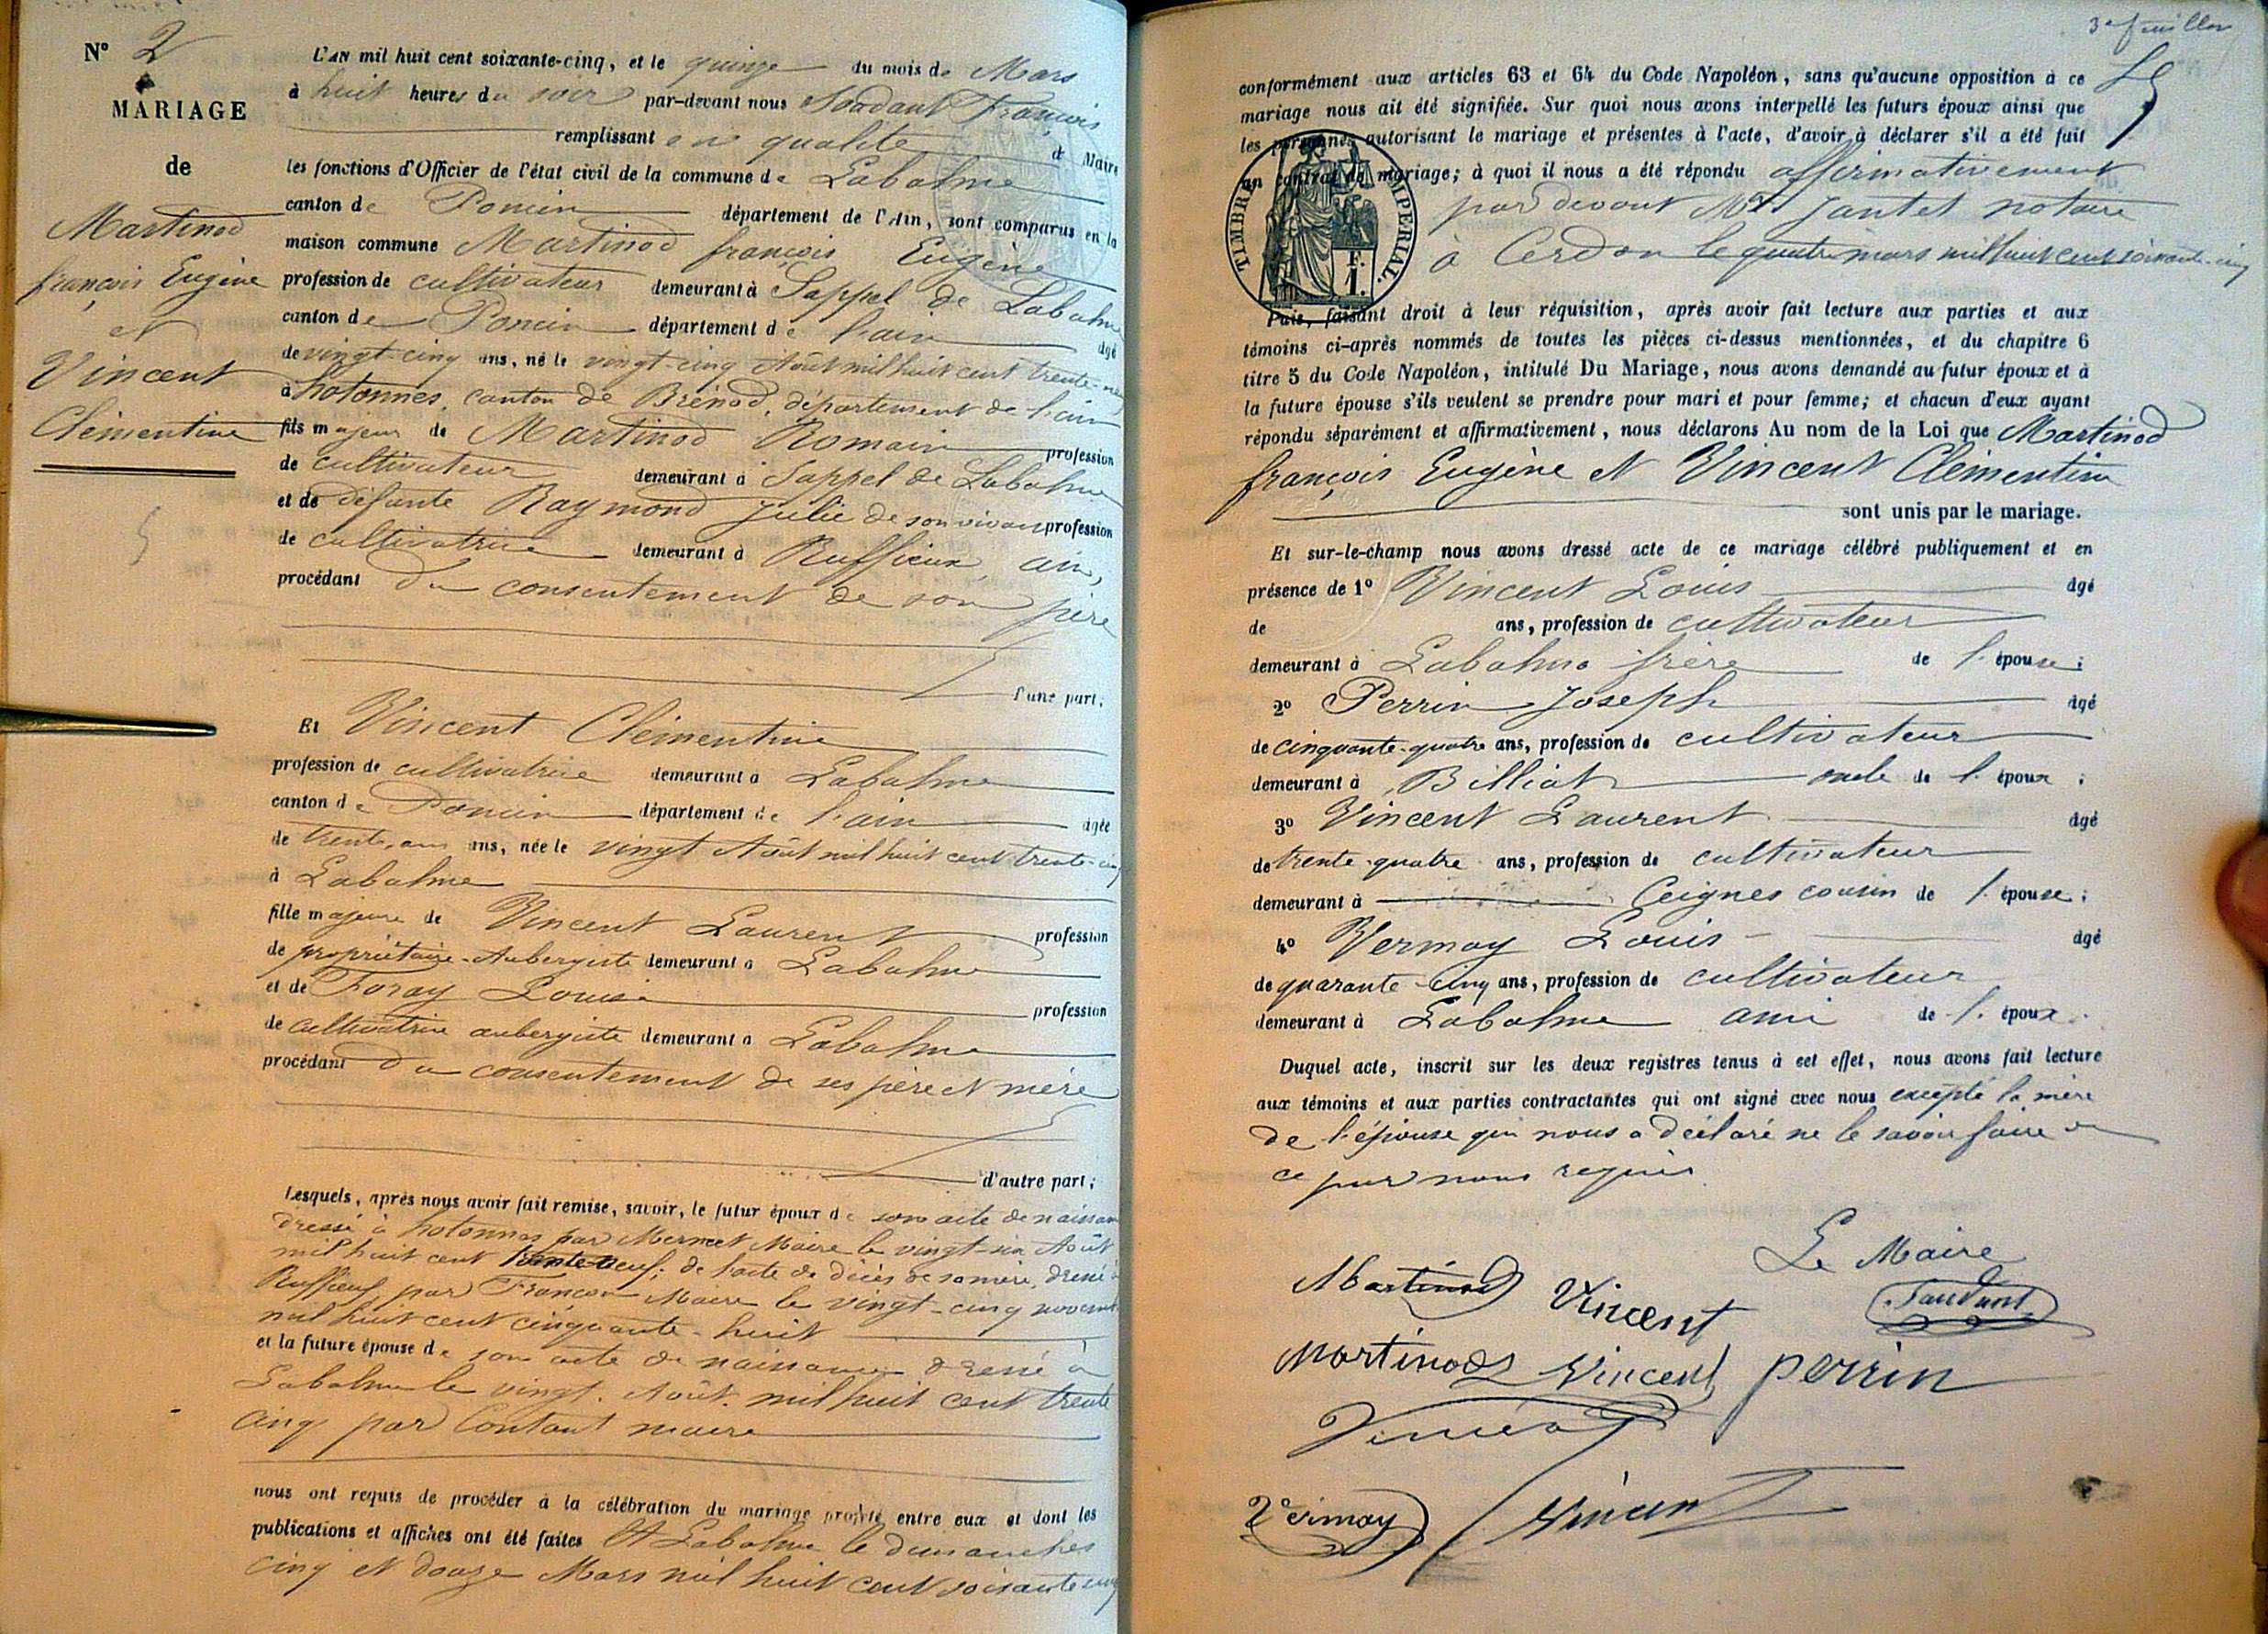 N° 2
MARIAGE
de
Martinod
françois Eugène
et
Vincent
Clémentine
L'AN mil huit cent soixante-cinq, et le quinze du mois de Mars
à huit heures du soir par-devant nous François
remplissant en qualité de Maire
les fonctions d'Officier de l'état civil de la commune de Labalme
canton de Poncin département de l'Ain, sont comparus en la
maison commune Martinod françois Eugène
profession de cultivateur demeurant à Sappel de Labalme
canton de Poncin département de l'ain âgé
de vingt-cinq ans, né le vingt-cinq Août mil huit cent trente-neuf
à hotonnes, canton de Brénod, département de l'ain
fils majeur de Martinod Romain profession
de cultivateur demeurant à Sappel de Labalme
et de défunte Raymond Julie de son vivant profession
de cultivatrice demeurant à Ruffieux, ain,
procédant du consentement de son père
d'une part;
Et Vincent Clémentine
profession de cultivatrice demeurant à Labalme
canton de Poncin département de l'ain âgée
de trente ans ans, née le vingt Août mil huit cent trente-cinq
à Labalme
fille majeure de Vincent Laurent profession
de propriétaire-Aubergiste demeurant à Labalme
et de Foray Louise profession
de cultivatrice aubergiste demeurant à Labalme
procédant du consentement de ses père et mère
d'autre part;
Lesquels, après nous avoir fait remise, savoir, le futur époux de son acte de naissance
dressé à hotonnes par Mermet Maire le vingt-six Août
mil huit cent trente-neuf; de l'acte de décès de sa mère, dressé à
Ruffieux par Maire le vingt-cinq novembre
mil huit cent cinquante-huit
et la future épouse de son acte de naissance dressé à
Labalme le vingt Août mil huit cent trente
cinq par Contant maire
nous ont requis de procéder à la célébration du mariage projeté entre eux et dont les
publications et affiches ont été faites A Labalme le dimanches
cinq et douze Mars mil huit cent soixante cinq
3e feuillet
conformément aux articles 63 et 64 du Code Napoléon, sans qu'aucune opposition à ce
mariage nous ait été signifiée. Sur quoi nous avons interpellé les futurs époux ainsi que
les personnes autorisant le mariage et présentes à l'acte, d'avoir à déclarer s'il a été fait
un contrat de mariage; à quoi il nous a été répondu affirmativement
par devant Jantet notaire
à Cerdon le quatre mars mil huit cent soixante-cinq
TIMBRE IMPERIAL.
F.
1.
Puis, faisant droit à leur réquisition, après avoir fait lecture aux parties et aux
témoins ci-après nommés de toutes les pièces ci-dessus mentionnées, et du chapitre 6
titre 5 du Code Napoléon, intitulé Du Mariage, nous avons demandé au futur époux et à
la future épouse s'ils veulent se prendre pour mari et pour femme; et chacun d'eux ayant
répondu séparément et affirmativement, nous déclarons Au nom de la Loi que Martinod
françois Eugène et Vincent Clémentine
sont unis par le mariage.
Et sur-le-champ nous avons dressé acte de ce mariage célébré publiquement et en
présence de 1° Vincent Louis âgé
de ans, profession de cultivateur
demeurant à Labalme frère de l'épouse;
2° Perrin Joseph âgé
de cinquante-quatre ans, profession de cultivateur
demeurant à Billiat oncle de l'époux;
3° Vincent Laurent âgé
de trente-quatre ans, profession de cultivateur
demeurant à Ceignes cousin de l'épouse;
4° Vermay Louis âgé
de quarante-cinq ans, profession de cultivateur
demeurant à Labalme ami de l'époux.
Duquel acte, inscrit sur les deux registres tenus à cet effet, nous avons fait lecture
aux témoins et aux parties contractantes qui ont signé avec nous excepté la mère
de l'épouse qui nous a déclaré ne le savoir faire de
ce par nous requis
Le Maire
Martinod Vincent
Martinod Vincent perrin
Vincent
Vermay Vincent